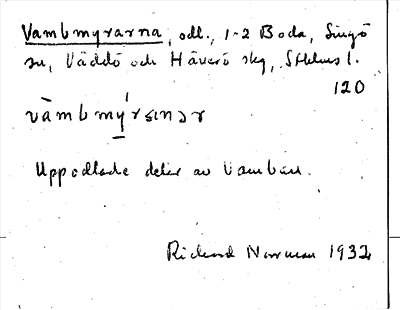 Vambmyrarna, odl., 1-2 Boda, Singö
sn, Väddö och Häverö skg, Sthlms l.
120
vàmbmy´rɑnɔr
Uppodlade delar av Vamben.
Rickard Norrman 1932